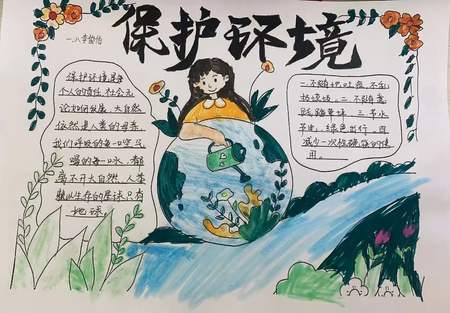 保护环境
保护环境是每
个人的责任,社会无
论如何发展,大自然
依然是人类的母亲,
我们呼吸的每一口空气,
喝的每一口水,都
离不开大自然,人类
赖以生存的星球只有
地球。
一、不随地吐痰,不乱
扔垃圾。二、不随意
践踏草坪 三、节水
节电,绿色出行。四、
减少一次性碗筷的使
用。